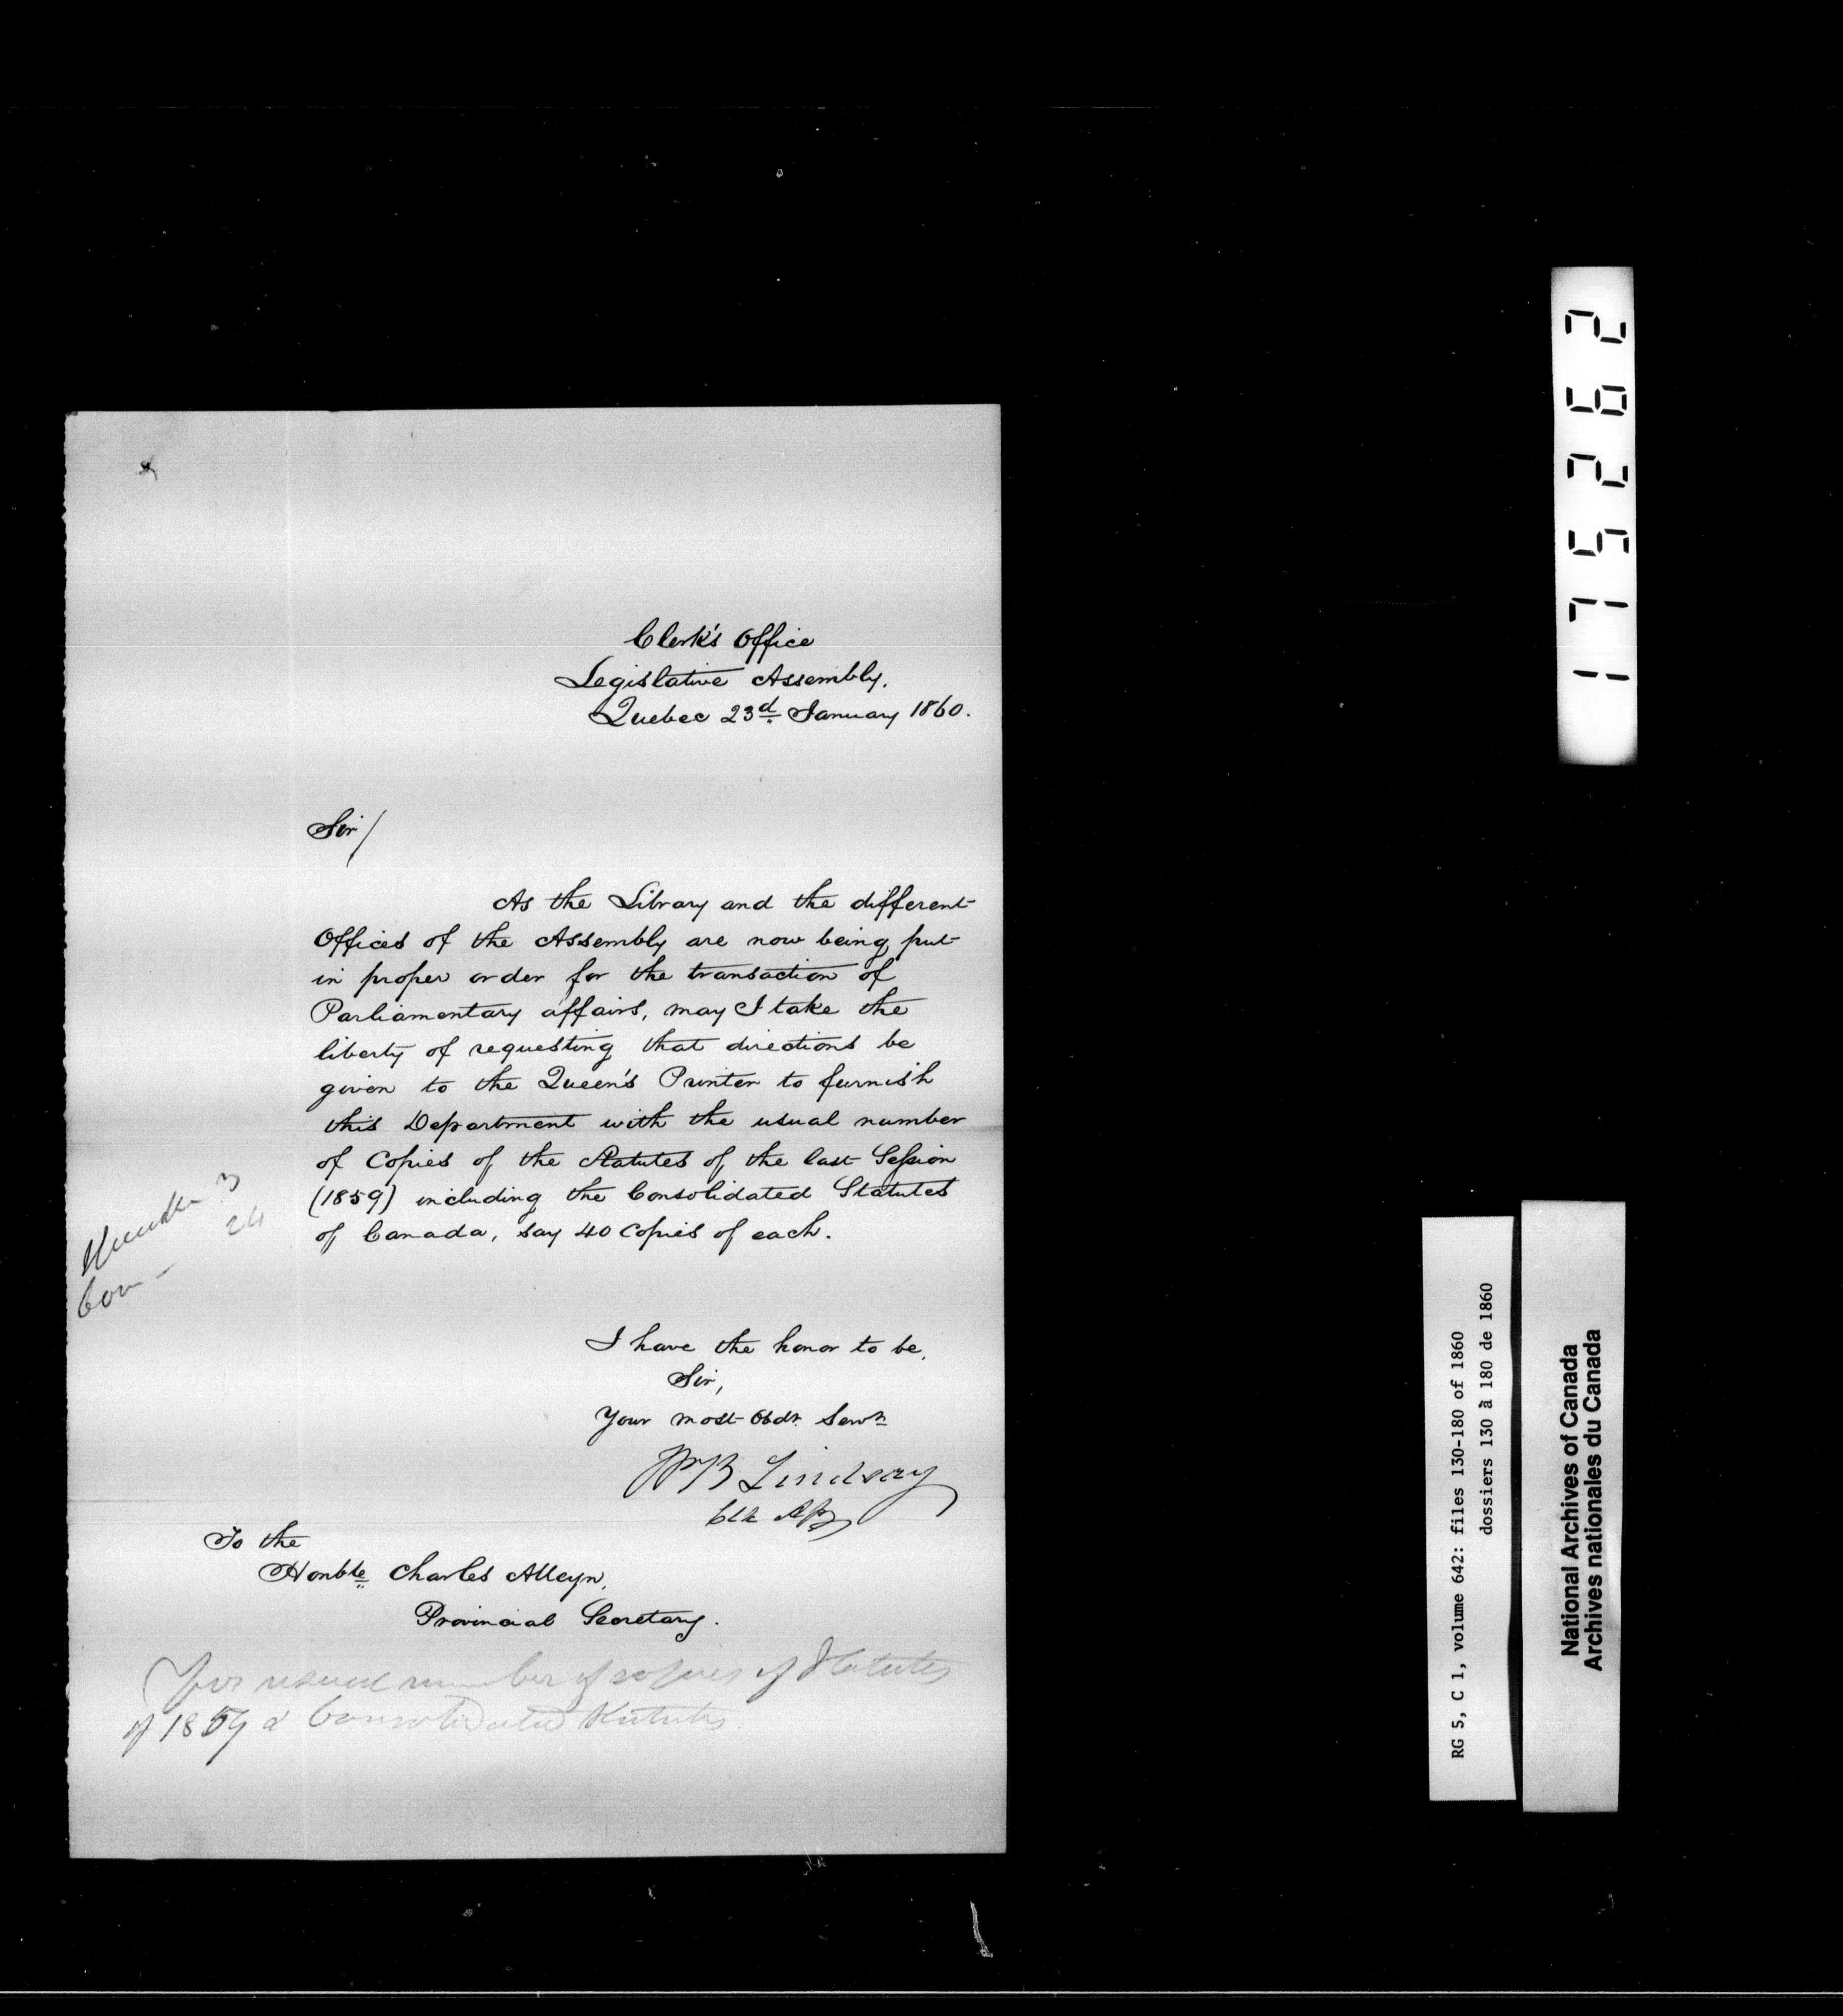 Clerk's Office
Legislative Assembly.
Quebec 23d. January 1860.
Sir/
As the Library and the different
Offices of the Assembly are now being put
in proper order for the transaction of
Parliamentary affairs, may I take the
liberty of requesting that directions be
given to the Queen's Printer to furnish
this Department with the usual number
of Copies of the Statutes of the last Session
(1859) including the Consolidated Statutes
of Canada, say 40 Copies of each.
I have the honor to be,
Sir,
Your most Obdt. Servt
Wm B Lindsay
Clk Assy
To the
Honble Charles Alleyn,
Provincial Secretary.
For usual number of copies of Statutes
of 1859 & Consolidated Statutes.
175262
RG 5, C 1, volume 642: files 130-180 of 1860
dossiers 130 à 180 de 1860
National Archives of Canada
Archives nationales du Canada